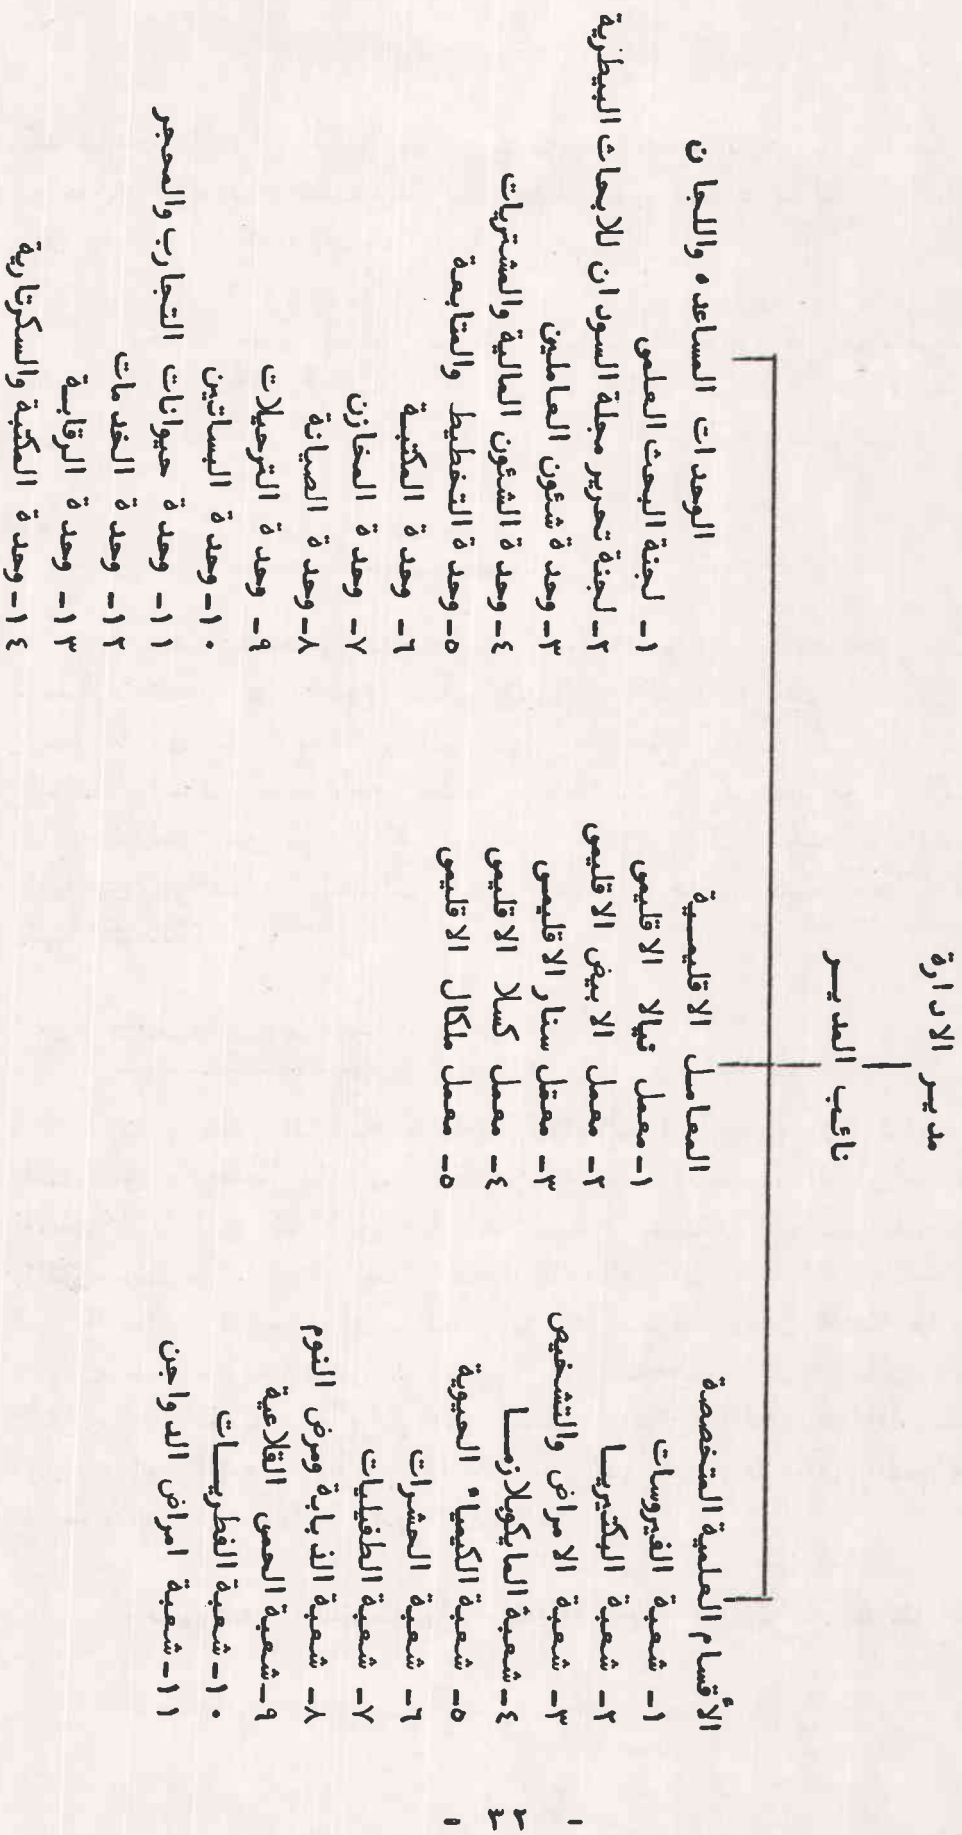 مدير الادارة
نائب المديـر
الأقسام العلمية المتخصصة
١- شعبة الفيروسات
٢- شعبة البكتيريـا
٣- شعبة الامراض والتشخيص
٤- شعبة المايكوبلازمـا
٥- شعبة الكيمياء الحيوية
٦- شعبة الحشرات
٧- شعبة الطفيليات
٨- شعبة الذبابة ومرض النوم
٩- شعبة الحمى القلاعية
١٠- شعبة الفطريـات
١١- شعبة امراض الدواجن
المعامـل الاقليمـية
١- معمل نيالا الاقليمى
٢- معمل الابيض الاقليمى
٣- معقل سنار الاقليمـى
٤- معمل كسلا الاقليمى
٥- معمل ملكال الاقليمى
الوحدات المساعده واللجان
١- لجنة البحث العلمى
٢- لجنة تحرير مجلة السودان للابحاث البيطرية
٣- وحدة شئون العاملين
٤- وحدة الشئون المالية والمشتريات
٥- وحدة التخطيط والمتابعة
٦- وحدة المكتبـة
٧- وحدة المخازن
٨- وحدة الصيانة
٩- وحدة الترحيلات
١٠- وحدة البساتين
١١- وحدة حيوانات التجارب والمحجر
١٢- وحدة الخدمات
١٣- وحدة الرقابـة
١٤- وحدة المكتبة والسكرتارية
- ٣٢ -